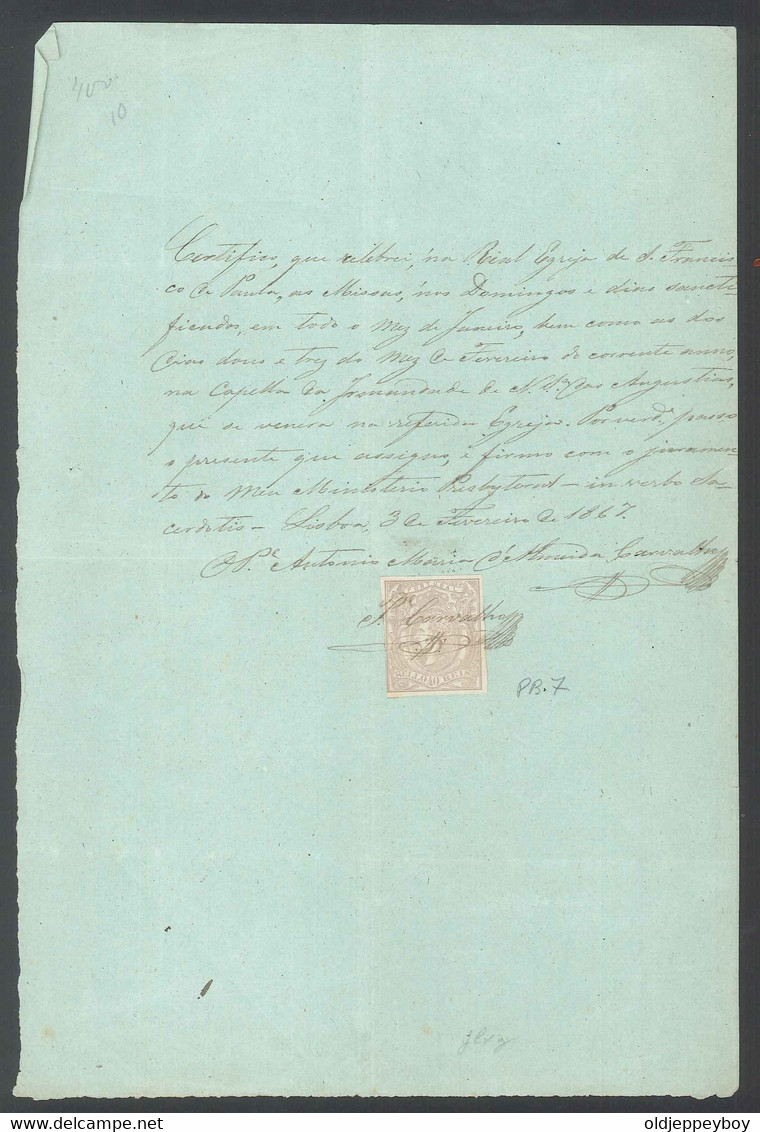 10
Certifico, que celebrei, na Real Egreja de S. Francis
co de Paula, as Missas, nos Domingos e dias sancti-
ficados, em todo o Mez de Janeiro, bem como as dos
dias dous e trez do Mez de Fevereiro do corrente anno,
na Capella da Irmandade de N. Srª das Angustias,
que se venera na referida Egreja. Por verdᵉ passo
o presente que assigno, e firmo com o juramen-
to do Meu Ministerio Presbyteral - in verbo Sa-
cerdotis - Lisboa, 3 de Fevereiro de 1867.
O Pᵉ Antonio Maria d'Almeida Carvalho
Pᵉ Carvalho
40 REIS
PB.7
delcampe.net
oldjeppeyboy